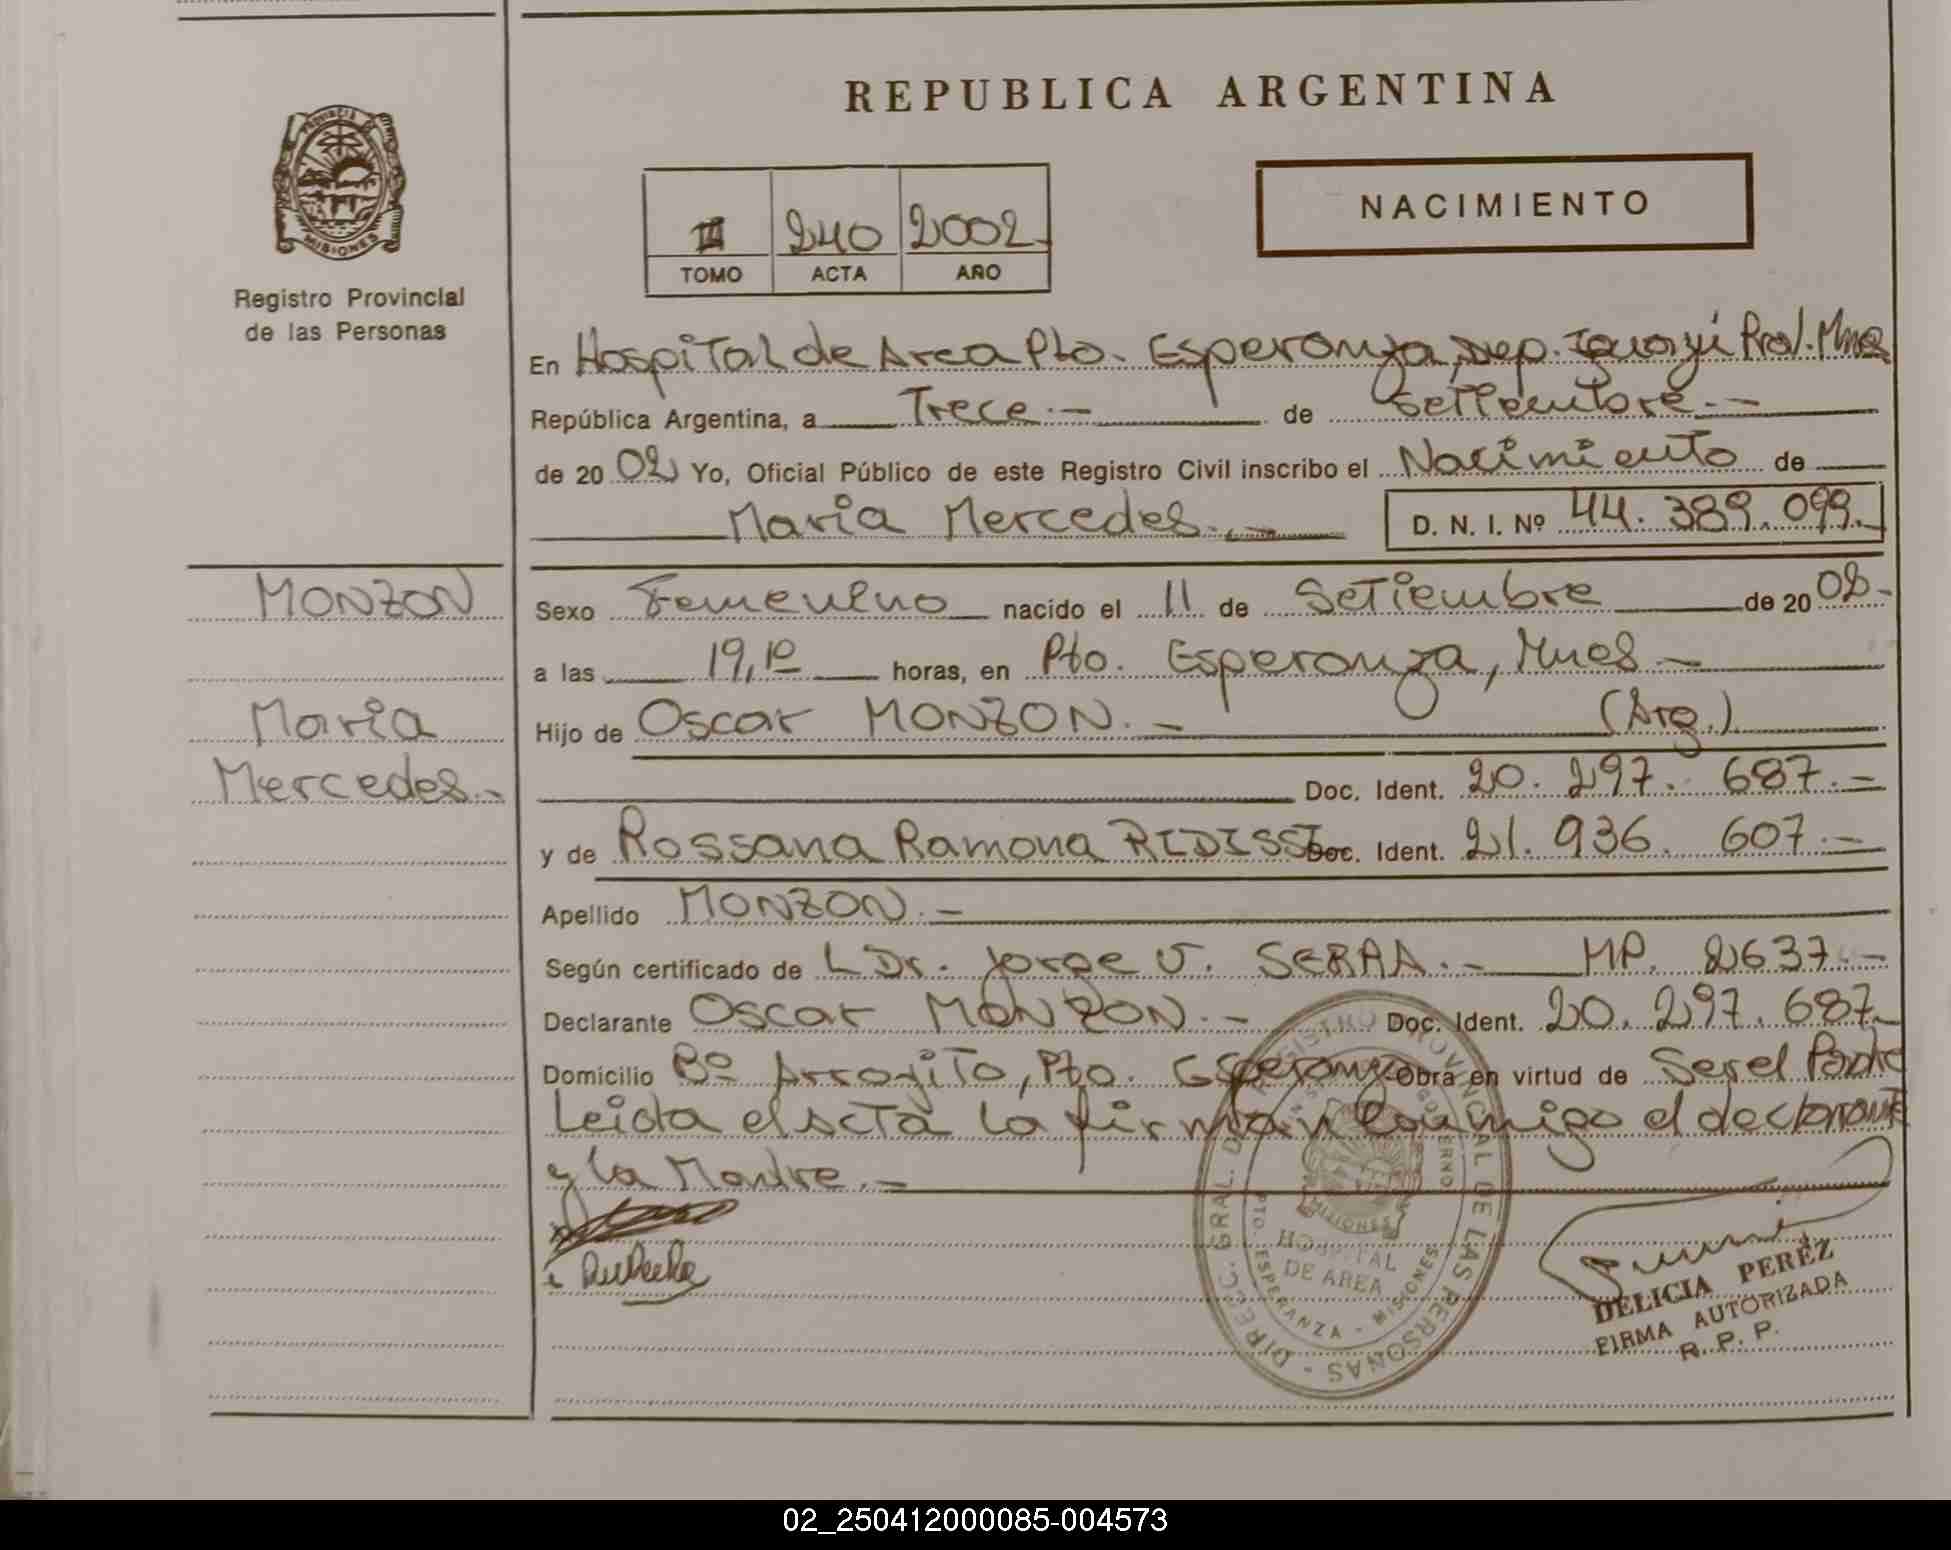 REPUBLICA ARGENTINA
PROVINCIA DE
MISIONES
Registro Provincial
de las Personas
II 240 2002.-
TOMO ACTA AÑO
NACIMIENTO
En Hospital de Area Pto. Esperanza, Dep. Iguazú Pcia. Mnes
República Argentina, a Trece.- de Setiembre.-
de 20 02 Yo, Oficial Público de este Registro Civil inscribo el Nacimiento de
Maria Mercedes.- D. N. I. Nº 44. 389. 099.-
MONZON
Maria
Mercedes.-
Sexo Femenino nacido el 11 de Setiembre de 20 02.-
a las 19,10 horas, en Pto. Esperanza, Mnes.-
Hijo de Oscar MONZON.- (Arg.)
Doc. Ident. 20. 297. 687.-
y de Rossana Ramona RIDISSI Doc. Ident. 21. 936. 607.-
Apellido MONZON.-
Según certificado de L Dr. Jorge V. SERRA.- MP. 2637.-
Declarante Oscar MONZON.- Doc. Ident. 20. 297. 687.-
Domicilio Bº Arroyito, Pto. Esperanza Obra en virtud de Ser el Padre
Leida el acta la firman conmigo el declarante
y la Madre.-
DIREC. GRAL. DEL REGISTRO PROVINCIAL DE LAS PERSONAS -
HOSPITAL
DE AREA
PTO. ESPERANZA - MISIONES
DELICIA PEREZ
FIRMA AUTORIZADA
R. P. P.
02_250412000085-004573